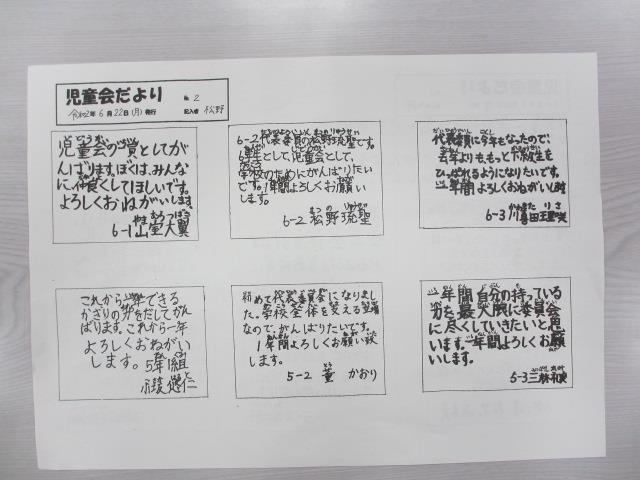 児童会だより
№2
令和2年6月22日(月)発行
記入者 松野
児童会の一員としてが
んばります。ぼくは、みんな
に仲良くしてほしいです。
よろしくおねがいします。
6-1 山室大翼
6-2代表委員の松野琉聖です。
6年生として、児童会として、
学校のためにがんばりたい
です。1年間よろしくお願い
します。
6-2 松野琉聖
代表委員に今年もなったので、
去年よりももっと下級生を
ひっぱれるようになりたいです。
一年間よろしくおねがいします
6-3
これから一年できる
かぎりの力をだしてがん
ばります。これから一年
よろしくおねがい
します。5年1組
初めて代表委員会になりまし
た。学校全体を支える立場
なので、がんばりたいです。
1年間よろしくお願い致
します。
5-2 董 かおり
一年間自分の持っている
力を最大限に委員会
に尽くしていきたいと思
います。一年間よろしくお願
いします。
5-3 三林